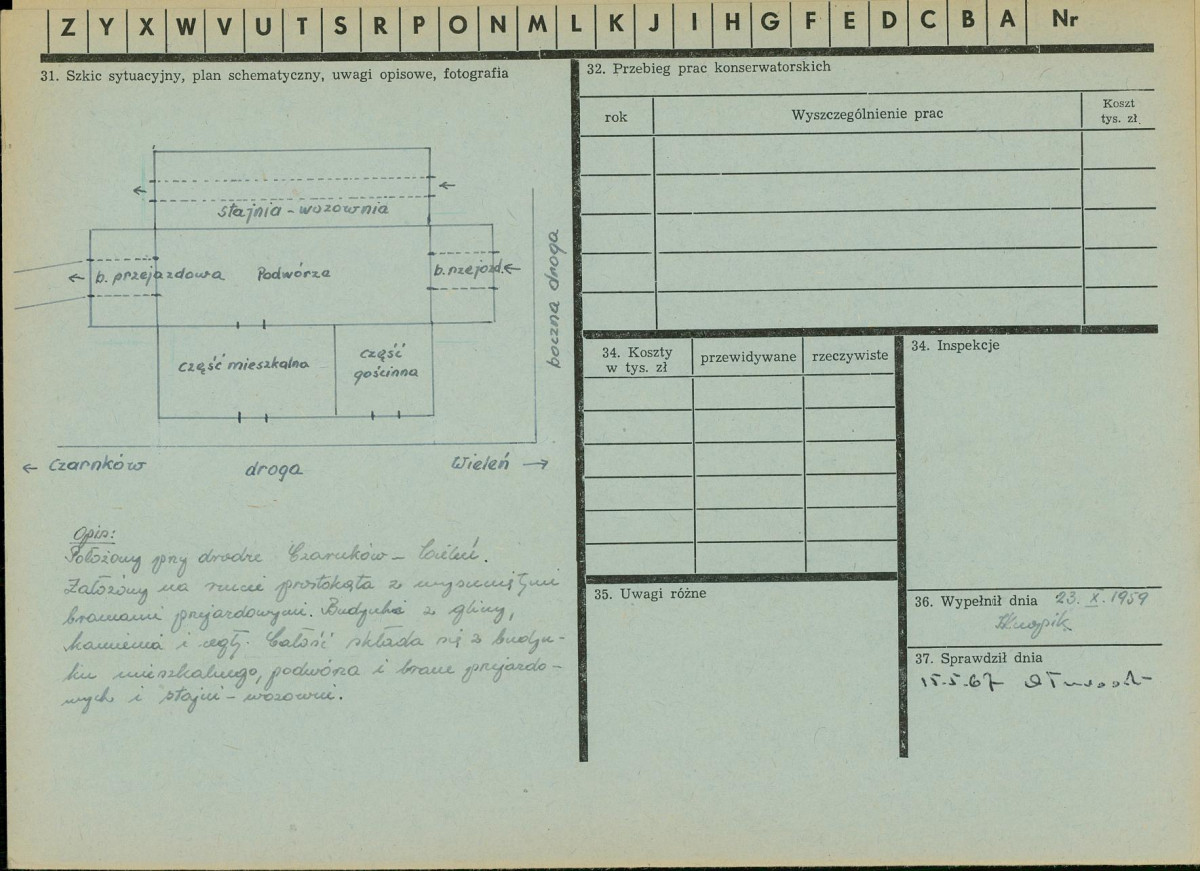 Z Y X W V U T S R P O N M L K J I H G F E D C B A Nr
31. Szkic sytuacyjny, plan schematyczny, uwagi opisowe, fotografia
stajnia - wozownia
b. przejazdowa
Podwórza
b. rzejazd.
część mieszkalna
część
gościnna
boczna droga
← Czarnków
droga
Wieleń →
Opis:
Położony przy drodze Czarnków - Wieleń.
Założony na rzucie prostokąta z wysuniętymi
bramami przejazdowymi. Budynki z gliny,
kamienia i cegły. Całość składa się z budyn-
ku mieszkalnego, podwórza i bram przejazdo-
wych i stajni - wozowni.
32. Przebieg prac konserwatorskich
rok
Wyszczególnienie prac
Koszt
tys. zł.
34. Koszty
w tys. zł
przewidywane
rzeczywiste
34. Inspekcje
35. Uwagi różne
36. Wypełnił dnia 23. X. 1959
37. Sprawdził dnia
15.5.67